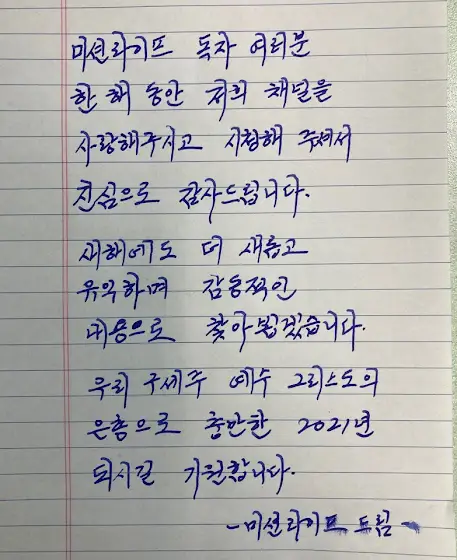 미션라이프 독자 여러분
한 해 동안 저희 채널을
사랑해주시고 시청해 주셔서
진심으로 감사드립니다.
새해에도 더 새롭고
유익하며 감동적인
내용으로 찾아뵙겠습니다.
우리 구세주 예수 그리스도의
은총으로 충만한 2021년
되시길 기원합니다.
-미션라이프 드림-